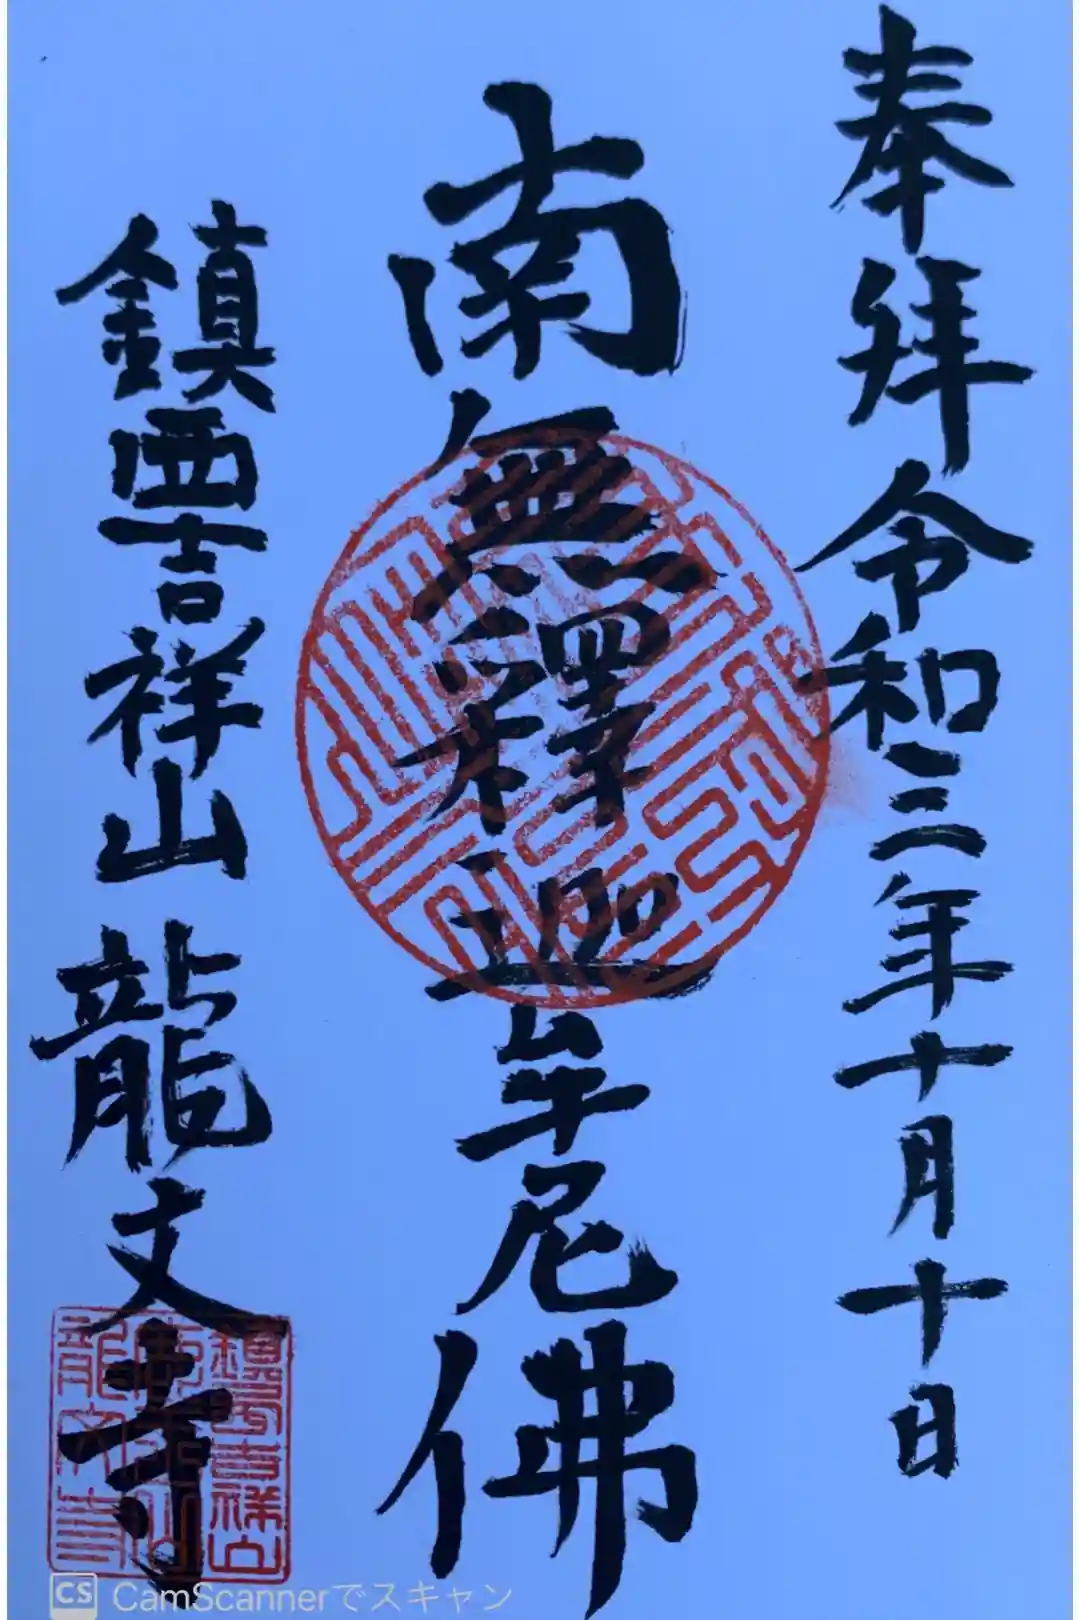 奉拜 令和三年十月十日
南無釋迦牟尼佛
鎮西吉祥山 龍文寺
鎮西吉祥山
龍文寺
CS CamScannerでスキャン